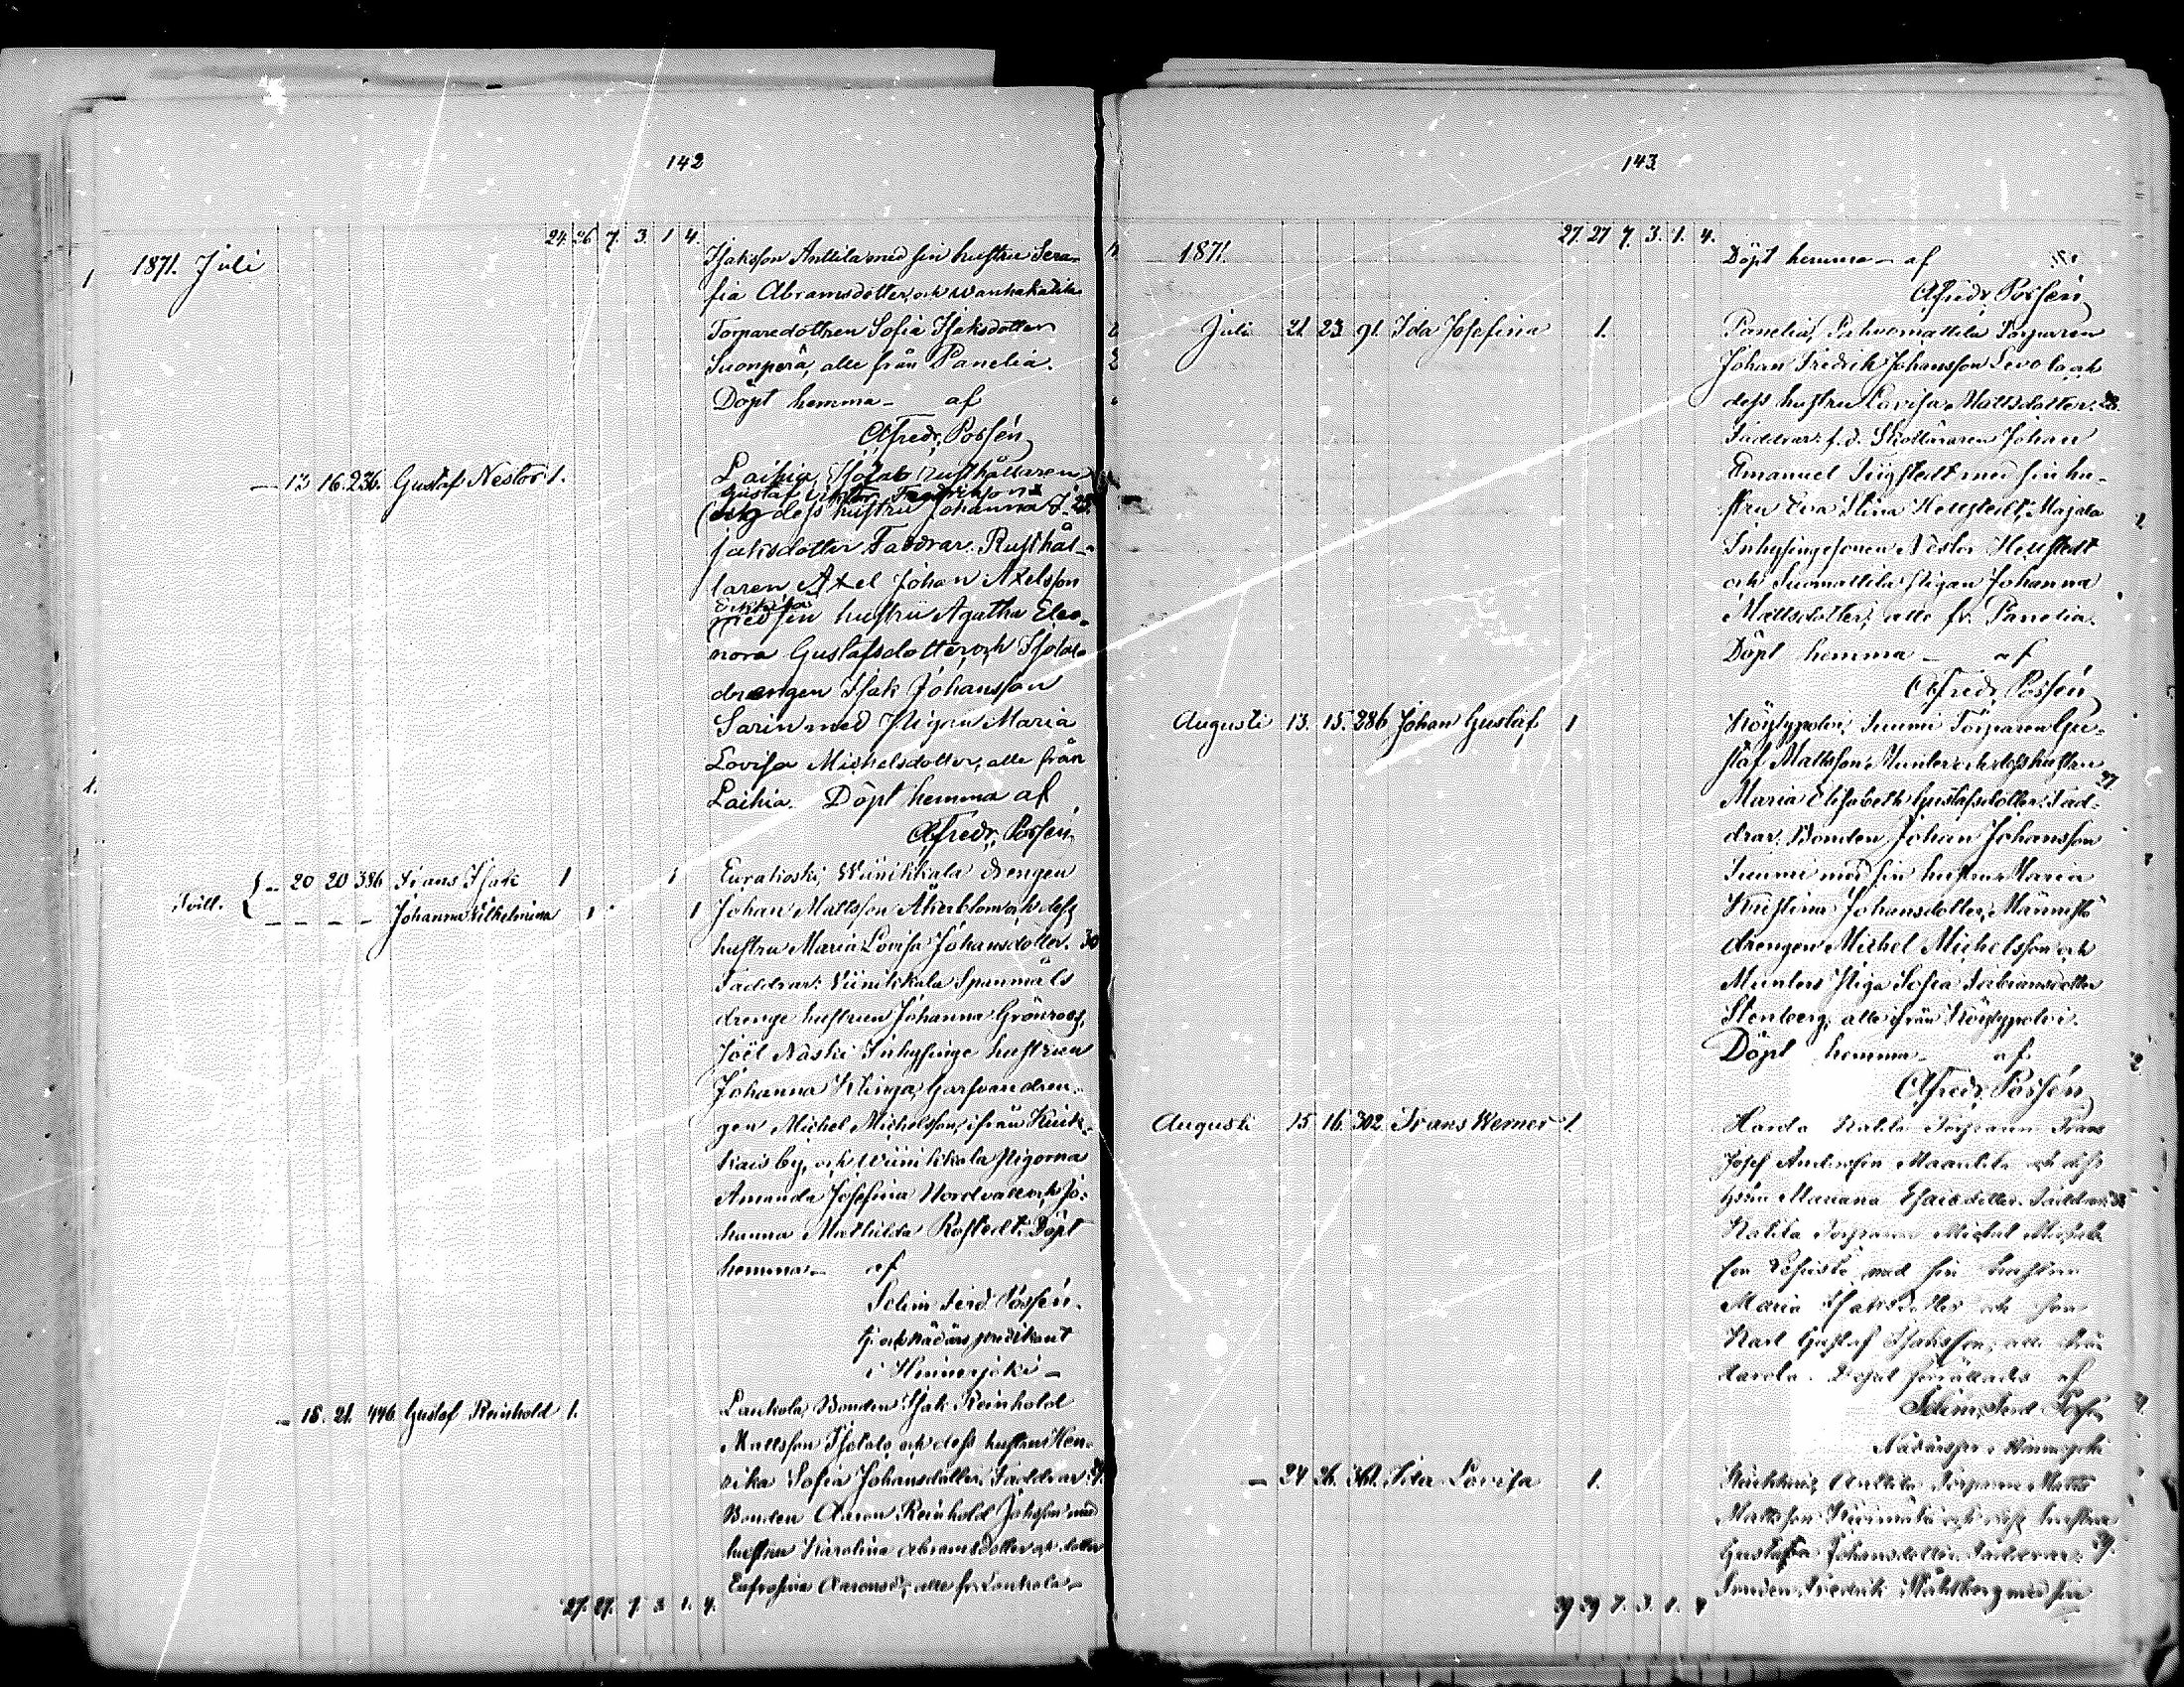 142
24. 26 7. 3. 1 4.
1871. Juli
Isaksson Anttila med sin hustru Sera-
fia Abramsdotter, och Wanhakadila
Torparedottren Sofia Isaksdotter
Suonperä, alle från Panelia.
Döpt hemma - af
Alfredr. Possén
- 13 16. 236. Gustaf Nestor 1.
Laihia, Isotalo Rusthållaren
Gustaf Viktor Fredriksson
och dess hustru Johanna I- 28.
saksdotter Faddrar: Rusthål-
laren Axel Johan Axelsson
Erkkila
med sin hustru Agatha Eleo-
nora Gustafsdotter, och Isotalo
drengen Isak Johansson
Sarin med Pigan Maria
Lovisa Michelsdotter, alle från
Laihia. Döpt hemma af
Alfredr. Possén
Tvill. { - 20 20 386 Frans Isak 1 1
- - - - Johanna Vilhelmina 1 1
Euraköski, Wiinikkala drengen
Johan Mattsson Åkerblom och dess
hustru Maria Lovisa Johansdotter. 30
Faddrar: Viinikkala Spanmåls
drenge hustrun Johanna Grönroos,
Joël Näski Inhysinge hustrun
Johanna Klinga, Garfvaredren-
gen Michel Michelsson, ifrån Kuik-
kais by, och Wiinikkala Pigorna
Amanda Josefina Nordvall och Jo-
hanna Mathilda Rostedt. Döpt
hemma - af
Selim Ferd. Possén.
Tj. och nådårs predikant
i Hinnerjoki -
- 18. 21. 446 Gustaf Reinhold 1.
Lankola, Bonden Isak Reinhold
Mattsson Isotalo, och dess hustru Hen-
rika Sofia Johansdotter. Faddrar:
Bonden Aaron Reinhold Johsson med
hustru Karolina Abramsdotter och dotter
Eufrosina Aaronsd:r, alle fr. Lankola -
27. 27. 7. 3. 1. 4.
143
27. 27 7. 3. 1. 4.
1871.
Döpt hemma - af
Alfredr. Possén
Juli 21. 23. 91. Ida Josefina 1.
Panelia, Torparen
Johan Fredrik Johansson Levola och
dess hustru Lovisa Mattsdotter. 28.
Faddrar: f. d. Skolläraren Johan
Emanuel med sin hu-
stru Eva Stina Hellstedt, Majala
Inhysingesonen Nestor Hellstedt
och Suomattila Pigan Johanna
Mattsdotter, alle fr. Panelia.
Döpt hemma - af
Alfredr. Possén
Augusti 13. 15. 286 Johan Gustaf 1
Köylypolvi, Suomi Torparen Gu-
staf Mattsson och dess hustru
27
Maria Elisabeth Gustafsdotter. Fad-
drar: Bonden Johan Johansson
Suomi med sin hustru Maria
Kristina Johansdotter, Männistö
drengen Michel Michelsson och
Piga Sofia Fabiansdotter
Stenberg, alle ifrån Köylypolvi.
Döpt hemma - af
Alfredr. Possén
Augusti 15. 16. 302. Frans Werner 1.
Harola Torparen Frans
Josef Andersson och dess
hstru Mariana Esaiasdotter. Faddrar: 38
Torparen Michel Michels-
son med sin hustru
Maria Isaksdotter och
Karl Gustaf Isaksson, alle från
Harola. Dopet förrättades af
Selim Ferd Possén
Nådårspr. i Hinnerjoki
- 24 26. 361. Ida Lovisa 1.
Anttila Torparen Matts
Mattsson och dess hustru
Gustafva Johansdotter. Faddrar: 39.
Fredrik Wahlberg med sin
29 29 7. 3. 1. 4